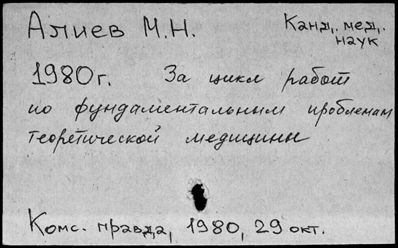 Алиев М.Н. Канд. мед.
наук
1980г. За цикл работ
по фундаментальным проблемам
теоретической медицины
Комс. правда, 1980, 29 окт.